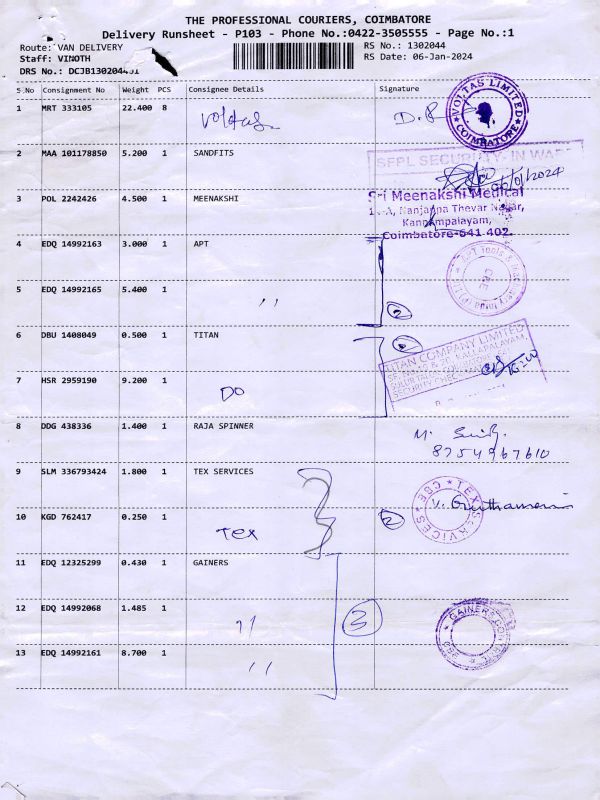 THE PROFESSIONAL COURIERS, COIMBATORE
Delivery Runsheet - P103 - Phone No.:0422-3505555 - Page No.:1
Route: VAN DELIVERY
RS No.: 1302044
Staff: VINOTH
RS Date: 06-Jan-2024
DRS No.: DCJB130204401
S No Consignment No Weight PCS Consignee Details Signature
1 MRT 333105 22.400 8 Voltas D.P
VOLTAS LIMITED
COIMBATORE
2 MAA 101178850 5.200 1 SANDFITS
SFPL SECURITY- IN WARD
06/01/2024
3 POL 2242426 4.500 1 MEENAKSHI
Sri Meenakshi Medical
Nanjappa Thevar Nagar,
Kannampalayam,
Coimbatore-641 402.
4 EDQ 14992163 3.000 1 APT
CBE
5 EDQ 14992165 5.400 1 ,,
2
6 DBU 1408049 0.500 1 TITAN
TITAN COMPANY LIMITED
7 HSR 2959190 9.200 1 DO
8 DDG 438336 1.400 1 RAJA SPINNER
8754967610
9 SLM 336793424 1.800 1 TEX SERVICES
TEX SERVICES * CBE *
10 KGD 762417 0.250 1 Tex
2
11 EDQ 12325299 0.430 1 GAINERS
12 EDQ 14992068 1.485 1 ,,
3
13 EDQ 14992161 8.700 1 ,,